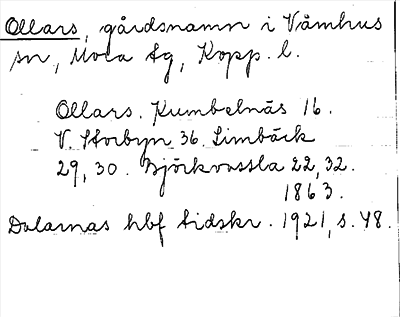 Ollars, gårdsnamn i Våmhus
sn, Mora tg, Kopp. l.
Ollars. Kumbelnäs 16.
V. Storbyn 36. Limbäck
29, 30. Björkvassla 22, 32.
1863.
Dalarnas hbf tidskr. 1921, s. 48.